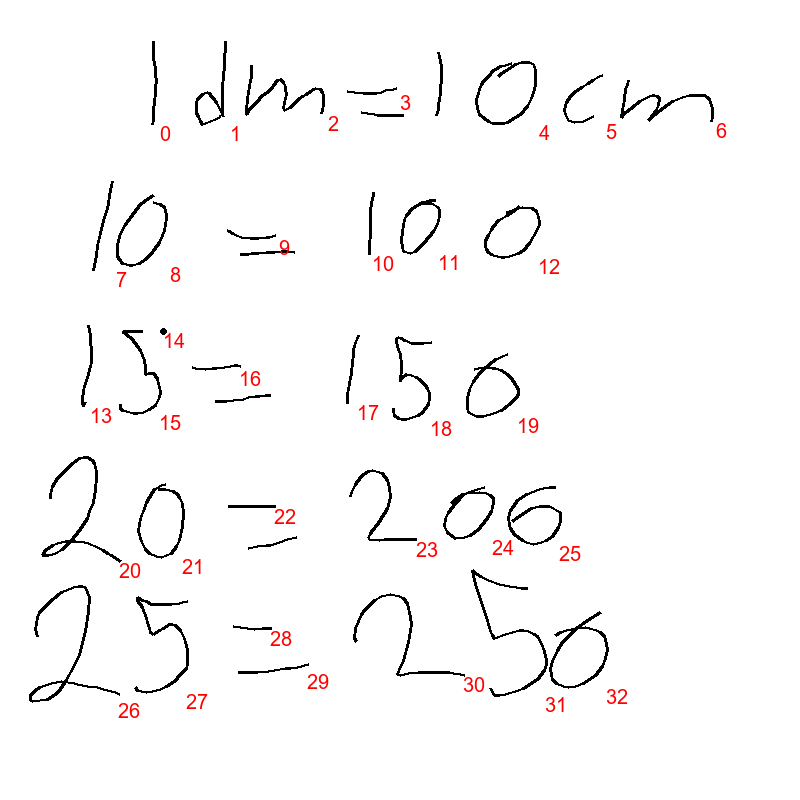 1dm=10cm
0 1 2 3 4 5 6
10 = 100
7 8 9 10 11 12
15 = 150
13 14 15 16 17 18 19
20 = 206
20 21 22 23 24 25
25 = 250
26 27 28 29 30 31 32